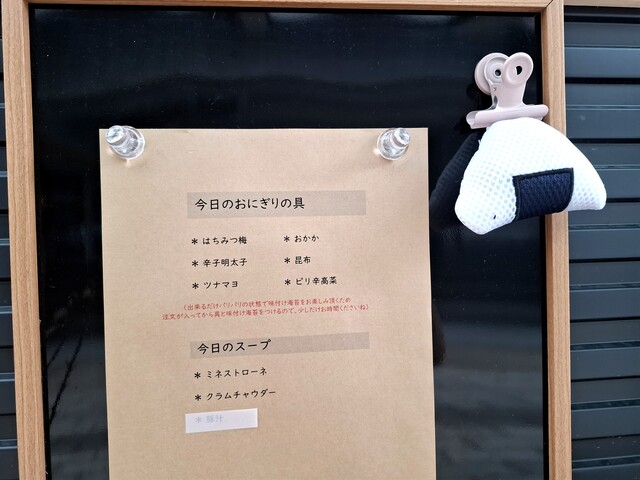 今日のおにぎりの具
* はちみつ梅 * おかか
* 辛子明太子 * 昆布
* ツナマヨ * ピリ辛高菜
(出来るだけパリパリの状態で味付け海苔をお楽しみ頂くため
注文が入ってから具と味付け海苔をつけるので、少しだけお時間くださいね)
今日のスープ
* ミネストローネ
* クラムチャウダー
* 豚汁